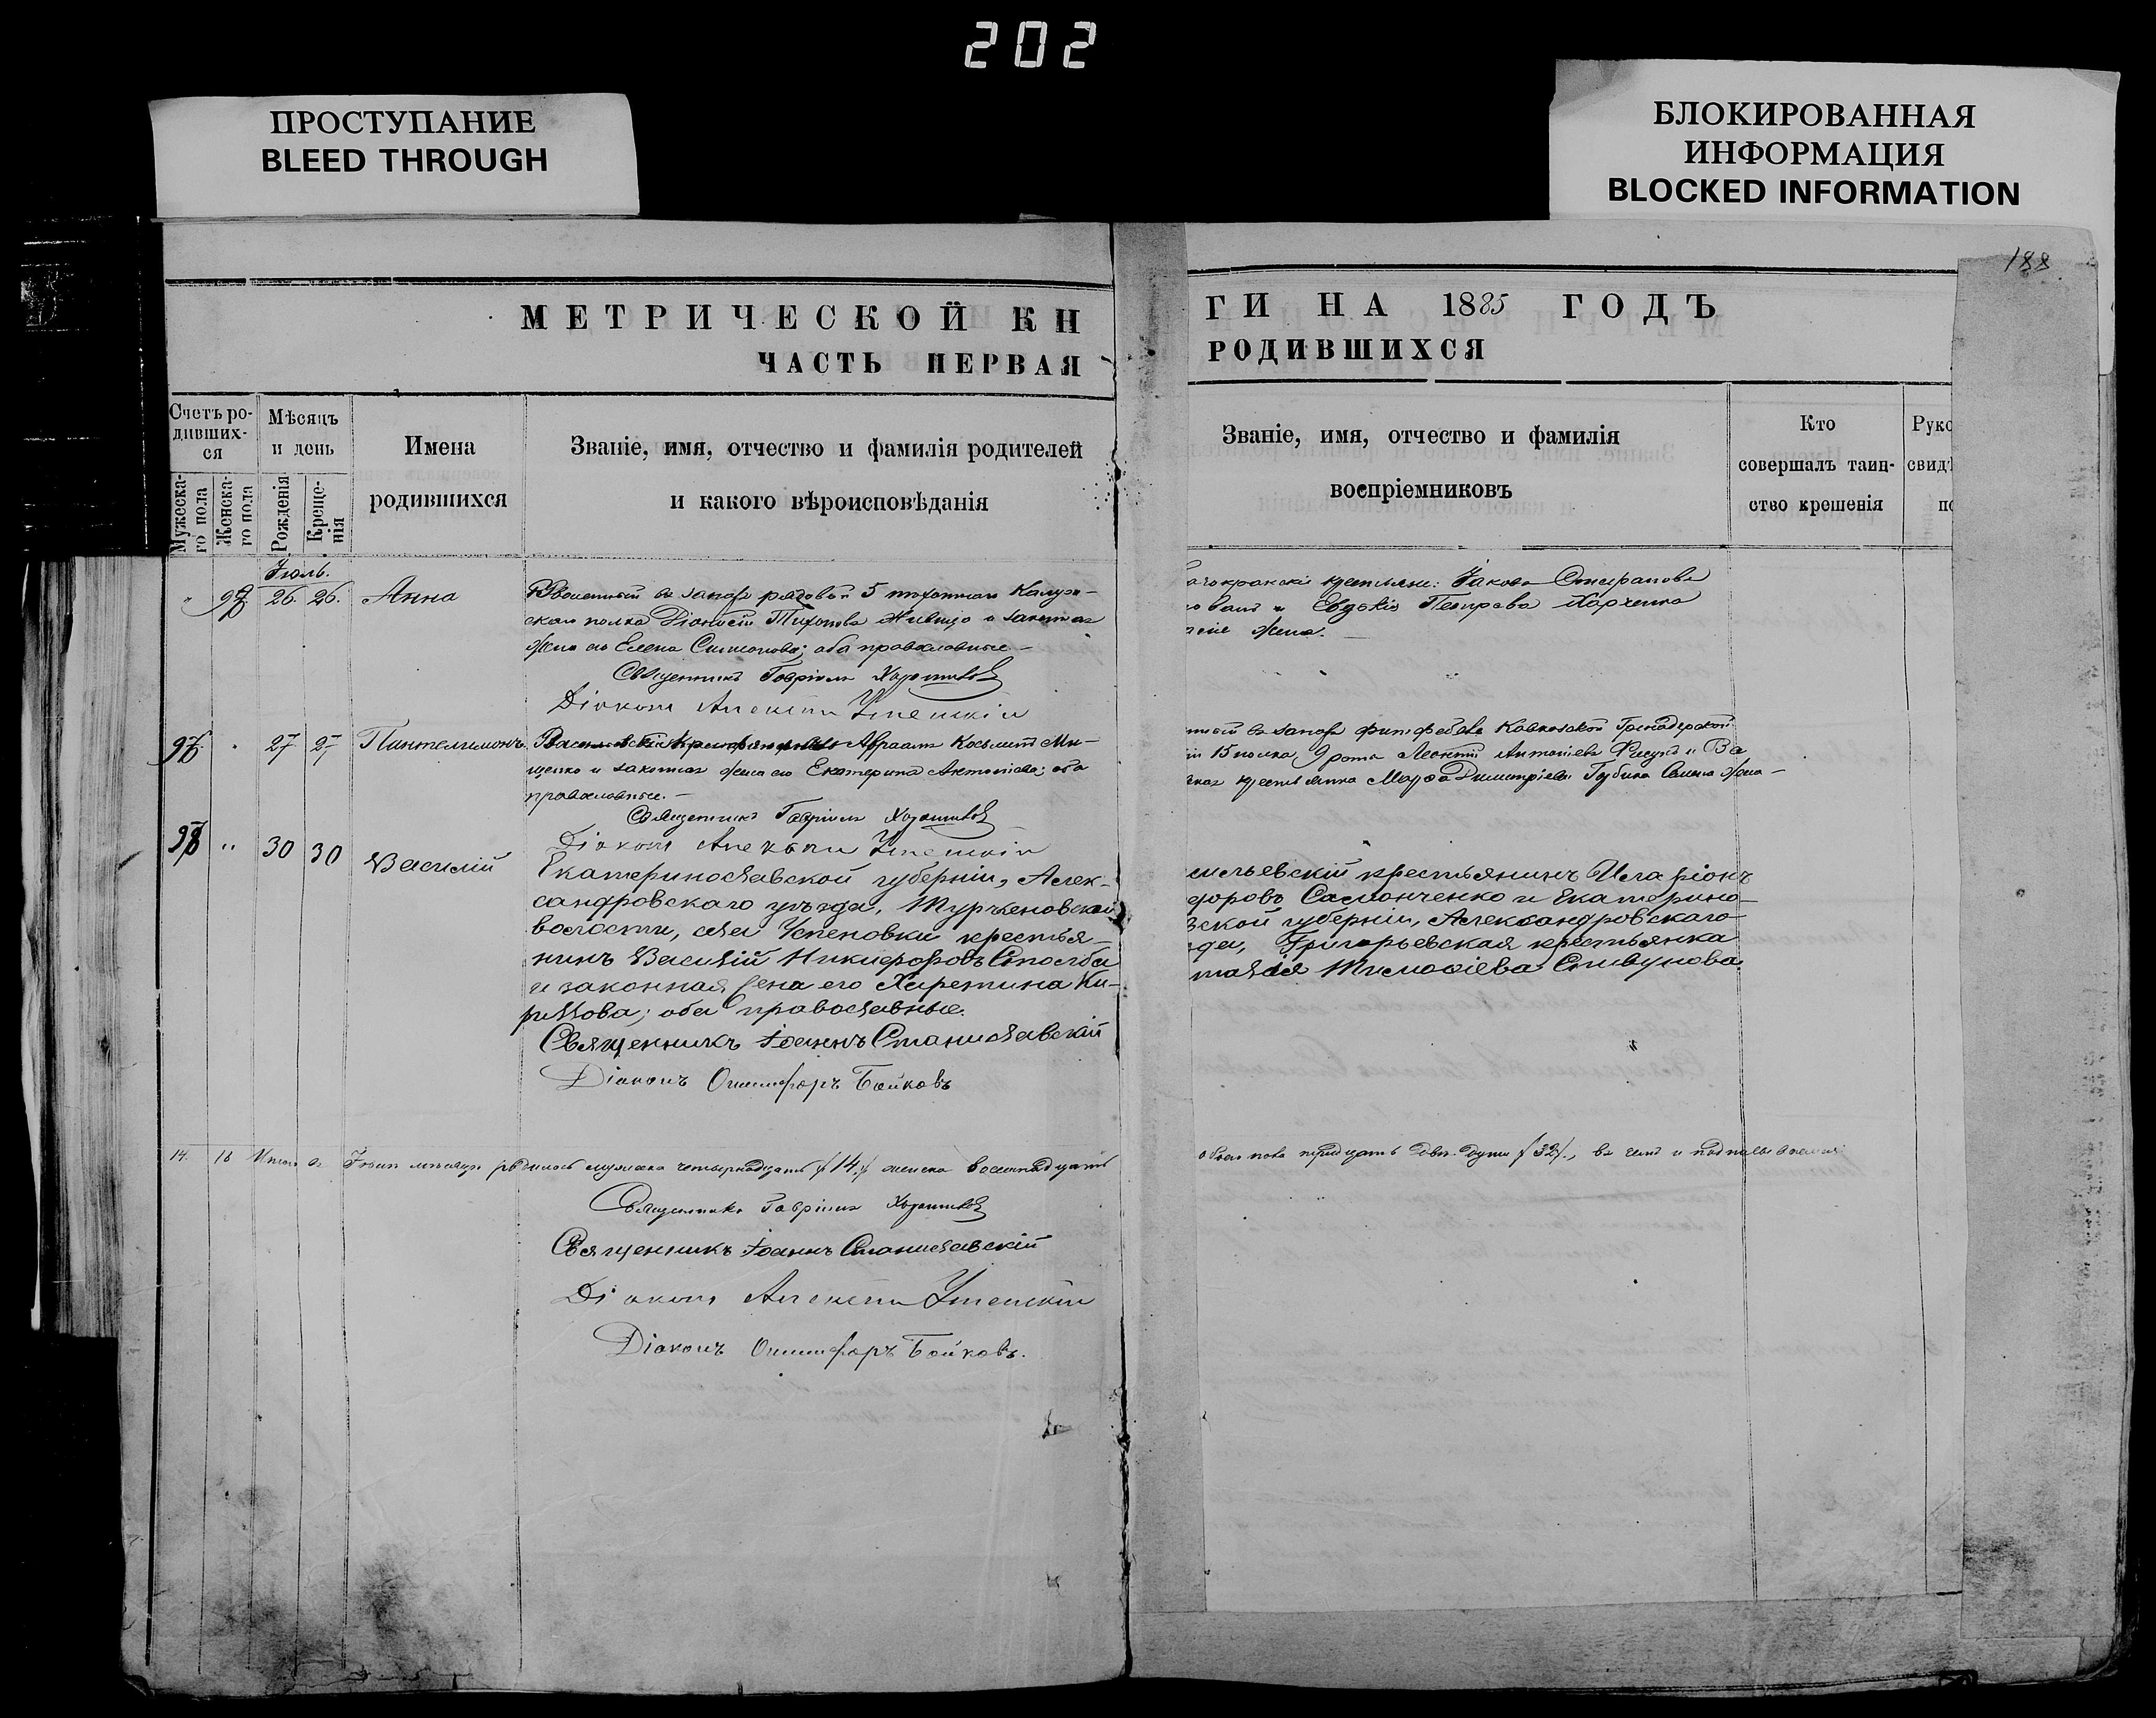 202
ПРОСТУПАНИЕ
BLEED THROUGH
БЛОКИРОВАННАЯ
ИНФОРМАЦИЯ
BLOCKED INFORMATION
188
МЕТРИЧЕСКОЙ КН
ЧАСТЬ ПЕРВАЯ
ГИ НА 1885 ГОДЪ
РОДИВШИХСЯ
Счетъ ро-
дивших-
ся
Мужеска-
го пола
Женска-
го пола
Мѣсяцъ
и день
Рожденія
Креще-
нія
Имена
родившихся
Званіе, имя, отчество и фамилія родителей
и какого вѣроисповѣданія
Званіе, имя, отчество и фамилія
воспріемниковъ
Кто
совершалъ таин-
ство крешенія
Руко
свидѣ
по
Іюль.
26. 26. Анна
въ запасъ рядовой 5 пѣхотнаго Калуж-
скаго полка Діонисій Тихоновъ и законная
жена его Елена Симонова; оба православные.—
Священникъ Гавріилъ
Діаконъ Алексѣй
крестьяне: Іаковъ Стефановъ
и Евдокія Петрова Харченко
жена.—
27 27 Пантелеимонъ
Авраамъ Косминъ Ми-
щенко и законная жена его Екатерина Антоніева; оба
православные.—
Священникъ Гавріилъ
Діаконъ Алексѣй
въ запасъ Кавказской Гренадерской
15 полка, 9 роты Леонтій Антоніевъ и Ва
крестьянка Марфа Димитріева Губина жена—
98 " 30 30 Василій
Екатеринославской губерніи, Алек-
сандровскаго уѣзда, Туркеновской
волости, села Успеновки крестья-
нинъ Василій Никифоровъ Столба
и законная жена его Харетина Ки-
риллова; оба православные.
Священникъ Іоаннъ Станиславскій
Діаконъ Онисифоръ Бойковъ
сильевскій крестьянинъ Иларіонъ
доровъ Самонченко и Екатерино-
вской губерніи, Александровскаго
зда, Григорьевская крестьянка
талія Тимоѳіева Сливунова.
14. 18 Итого въ Іюлѣ мѣсяцѣ родилось мужеска четырнадцать /14/ женска восемнадцать
обоего пола тридцать двѣ души /32/, въ чемъ и подписываемся
Священникъ Гавріилъ
Священникъ Іоаннъ Станиславскій
Діаконъ Алексѣй
Діаконъ Онисифоръ Бойковъ.